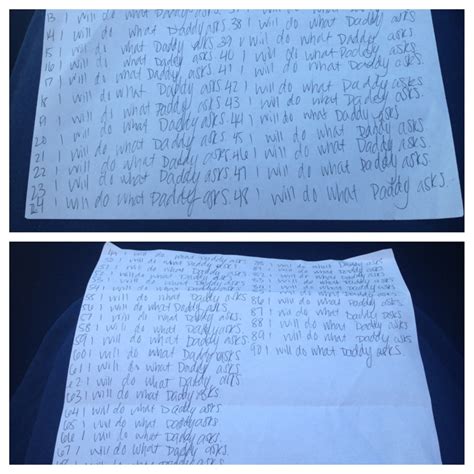 13 I will do what Daddy asks. I will do what Daddy asks.
14 I will do what Daddy asks. 38 I will do what Daddy asks.
15 I will do what Daddy asks. 39 I will do what Daddy asks.
16 I will do what Daddy asks. 40 I will do what Daddy asks.
I will do what Daddy asks. 41 I will do what Daddy asks.
8 I will do what Daddy asks. 42 I will do what Daddy asks.
19 I will do what Daddy asks. 43 I will do what Daddy asks.
20 I will do what Daddy asks. 44 I will do what Daddy asks.
21 I will do what Daddy asks. 45 I will do what Daddy asks.
22 I will do what Daddy asks. 46 I will do what Daddy asks.
23 I will do what Daddy asks. 47 I will do what Daddy asks.
24 I will do what Daddy asks. 48 I will do what Daddy asks.
I will do what Daddy asks.
I will do what Daddy asks. I will do what Daddy asks.
I will do what Daddy asks. I will do what Daddy asks.
I will do what Daddy asks. I will do what Daddy asks.
I will do what Daddy asks. I will do what Daddy asks.
54 I will do what Daddy asks. I will do what Daddy asks.
55 I will do what Daddy asks. 86 I will do what Daddy asks.
56 I will do what Daddy asks. 87 I will do what Daddy asks.
57 I will do what Daddy asks. 88 I will do what Daddy asks.
58 I will do what Daddy asks. 89 I will do what Daddy asks.
59 I will do what Daddy asks. 90 I will do what Daddy asks.
60 I will do what Daddy asks.
61 I will do what Daddy asks.
62 I will do what Daddy asks.
63 I will do what Daddy asks.
64 I will do what Daddy asks.
65 I will do what Daddy asks.
66 I will do what Daddy asks.
67 I will do what Daddy asks.